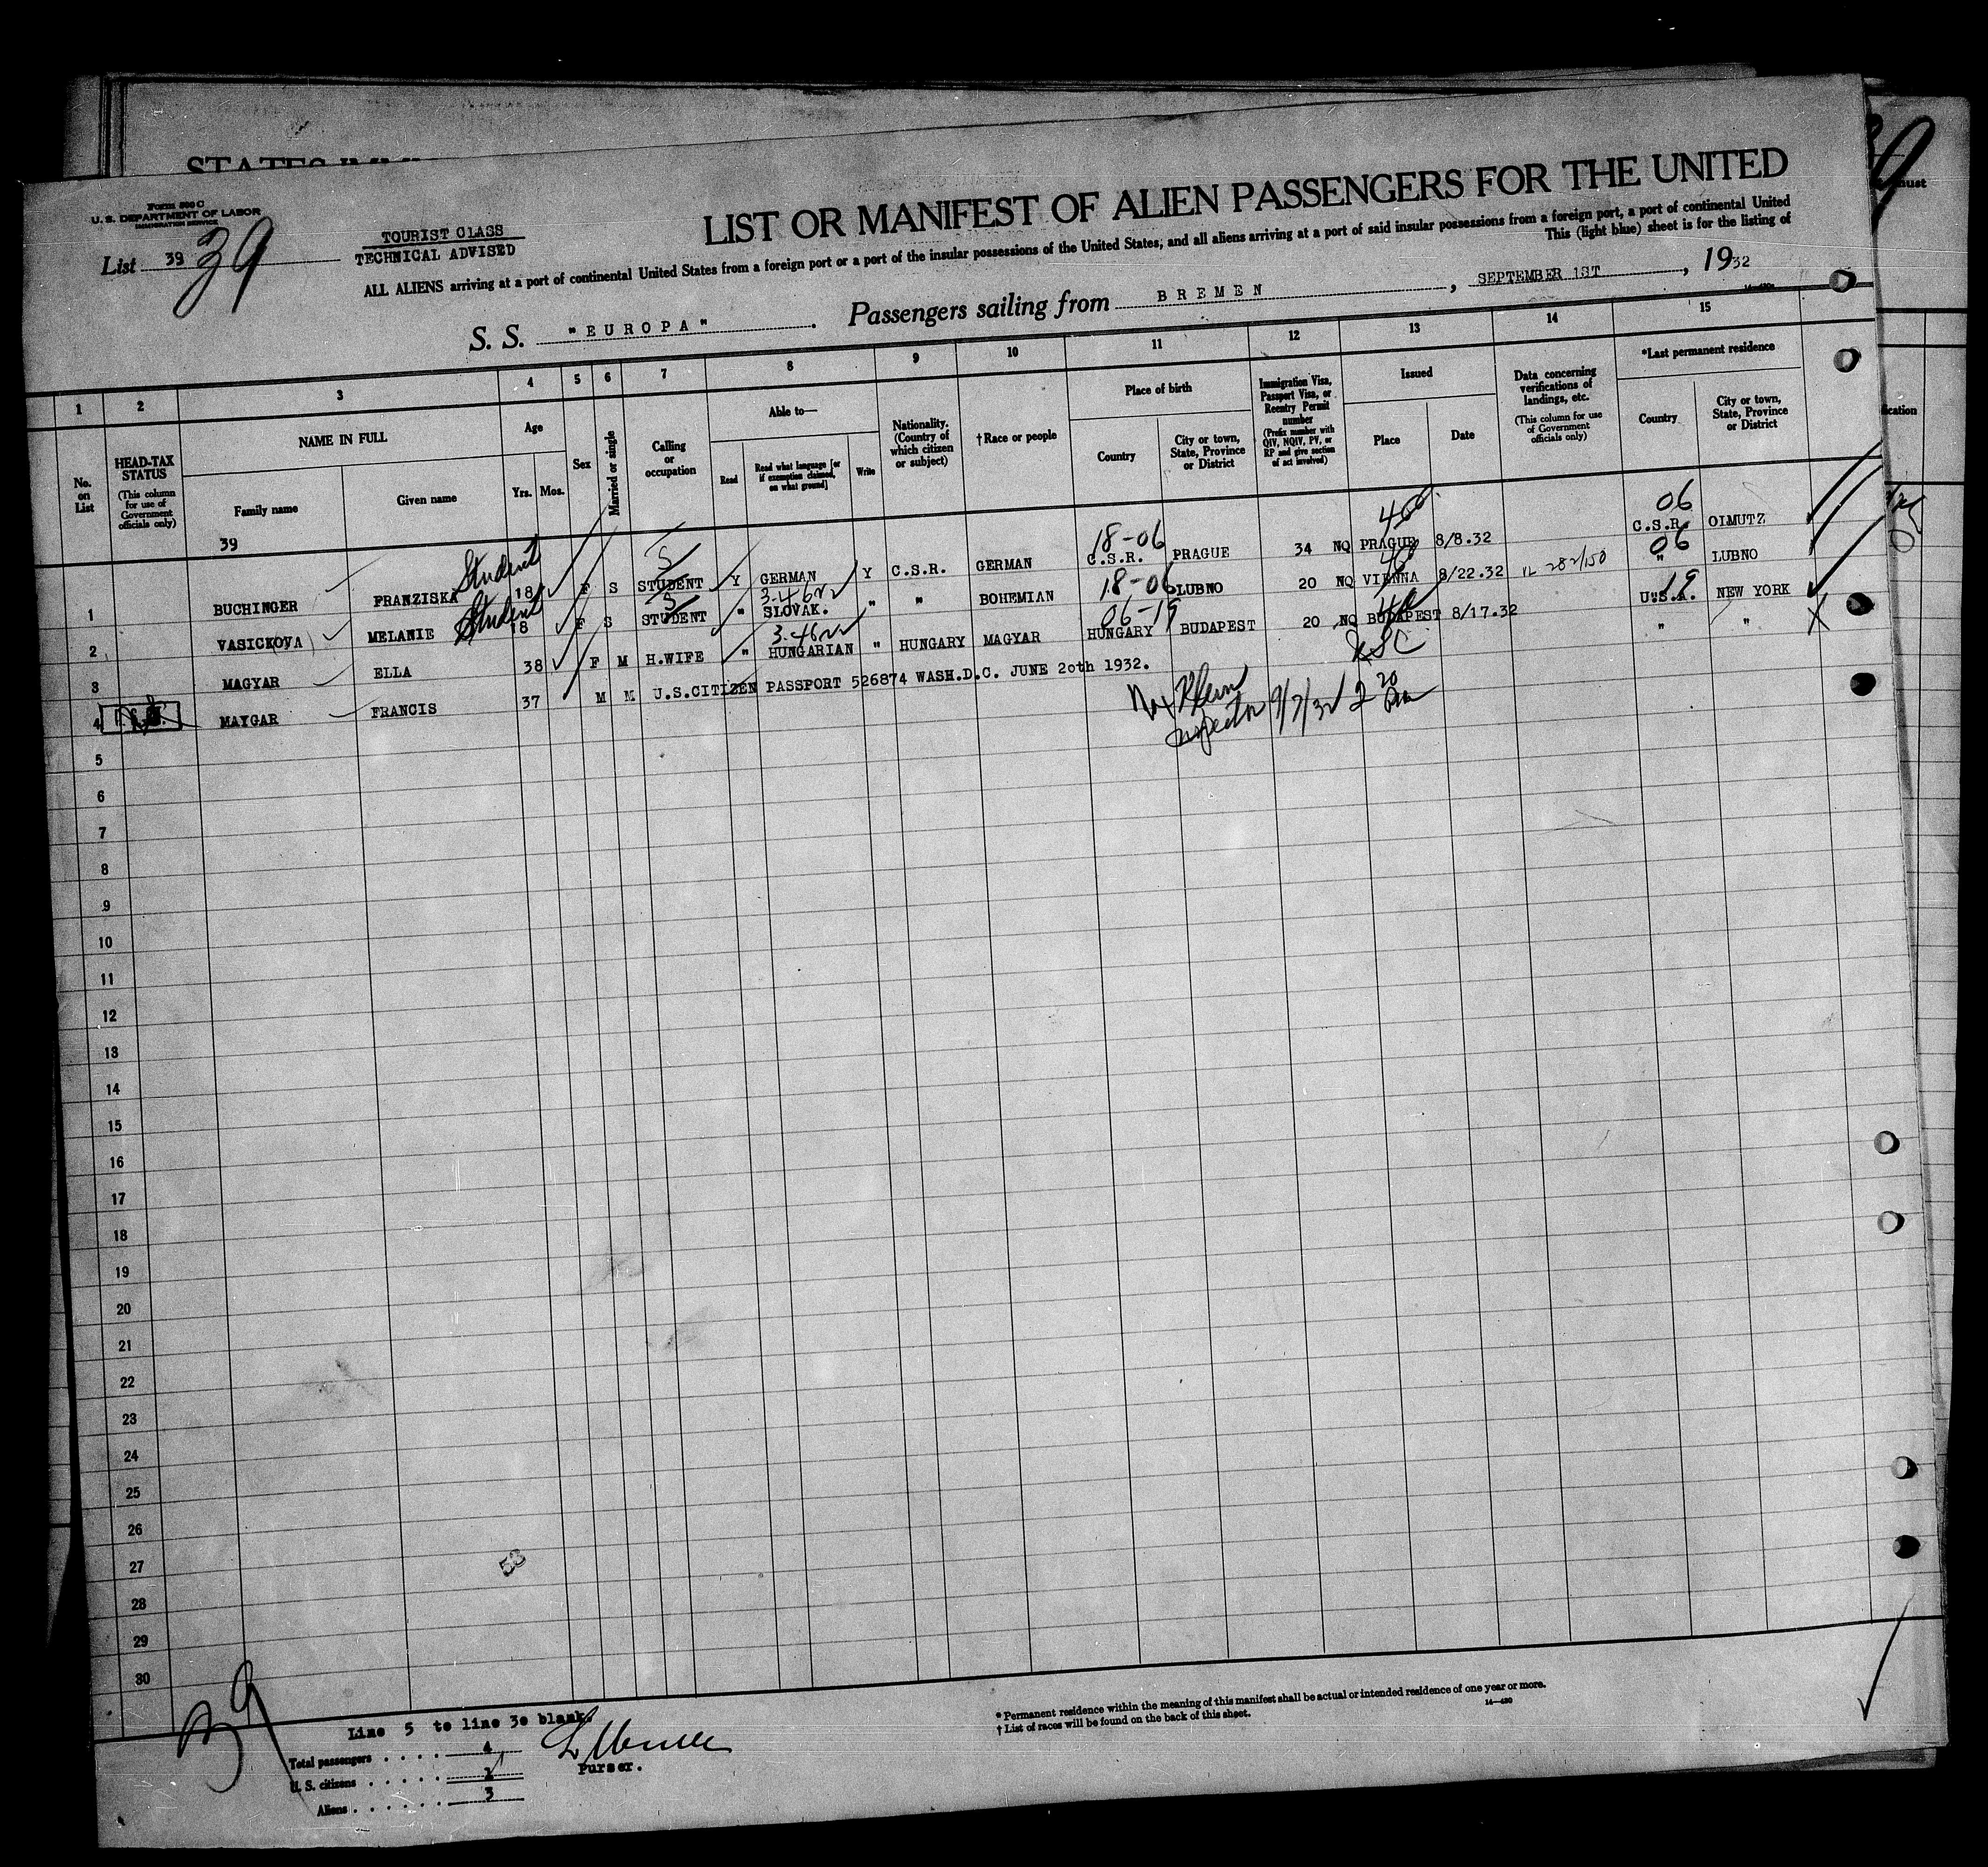 STATES IMMI
Form 500 C
U. S. DEPARTMENT OF LABOR
IMMIGRATION SERVICE
List 39
39
TOURIST CLASS
TECHNICAL ADVISED
LIST OR MANIFEST OF ALIEN PASSENGERS FOR THE UNITED
ALL ALIENS arriving at a port of continental United States from a foreign port or a port of the insular possessions of the United States, and all aliens arriving at a port of said insular possessions from a foreign port, a port of continental United
This (light blue) sheet is for the listing of
S. S. "EUROPA". Passengers sailing from BREMEN, SEPTEMBER 1ST, 1932
1 2 3 4 5 6 7 8 9 10 11 12 13 14 15
No. on List
HEAD-TAX STATUS
(This column for use of Government officials only)
NAME IN FULL
Family name
Given name
Age
Yrs. Mos.
Sex
Married or single
Calling or occupation
Able to—
Read
Read what language [or if exemption claimed, on what ground]
Write
Nationality. (Country of which citizen or subject)
†Race or people
Place of birth
Country
City or town, State, Province or District
Immigration Visa, Passport Visa, or Reentry Permit number
(Prefix number with QIV, NQIV, PV, or RP and give section of act involved)
Issued
Place
Date
Data concerning verifications of landings, etc.
(This column for use of Government officials only)
*Last permanent residence
Country
City or town, State, Province or District
39
Student S 18-06 06
1 BUCHINGER FRANZISKA 18 F S STUDENT Y GERMAN Y C.S.R. GERMAN C.S.R. PRAGUE 34 NQ PRAGUE 8/8.32 C.S.R. OLMUTZ
Student S 3-46 18-06 06
2 VASICKOVA MELANIE 18 F S STUDENT " SLOVAK. " " BOHEMIAN LUBNO 20 NQ VIENNA 8/22.32 " LUBNO
3-46 06-19 19
3 MAGYAR ELLA 38 F M H.WIFE " HUNGARIAN " HUNGARY MAGYAR HUNGARY BUDAPEST 20 NQ BUDAPEST 8/17.32 U.S.A. NEW YORK
4 MAYGAR FRANCIS 37 M M U.S.CITIZEN PASSPORT 526874 WASH.D.C. JUNE 20th 1932. " "
Inspector 9/7/32
5
6
7
8
9
10
11
12
13
14
15
16
17
18
19
20
21
22
23
24
25
26
27
28
29
30
53
39
Line 5 to line 30 blank.
Total passengers . . . . 4
U. S. citizens . . . . . 1
Aliens . . . . . . 3
Purser.
* Permanent residence within the meaning of this manifest shall be actual or intended residence of one year or more.
† List of races will be found on the back of this sheet.
14—430